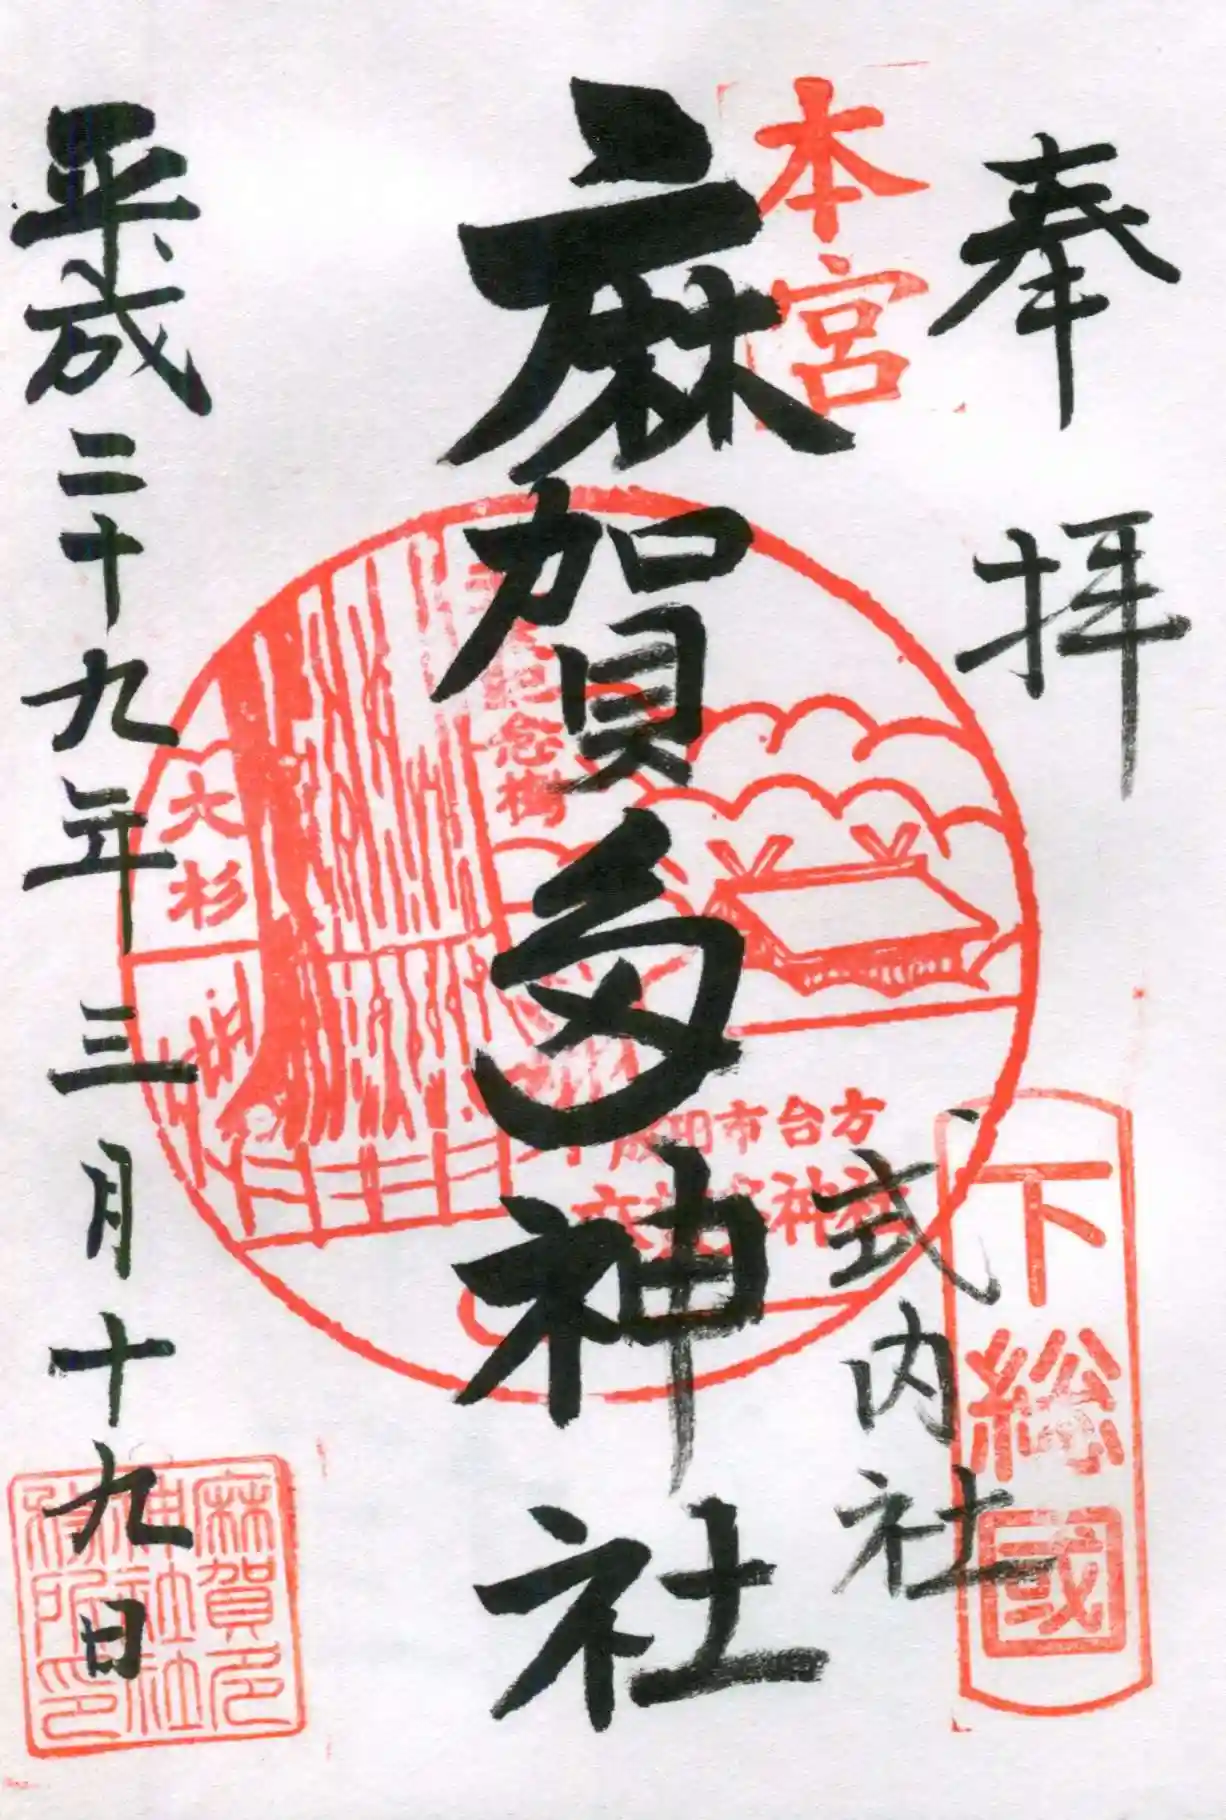 奉拝
下総國
式内社
本宮
麻賀多神社
天然記念樹
大杉
成田市台方
麻賀多神社
平成二十九年三月十九日
麻賀多
神社社
務所印